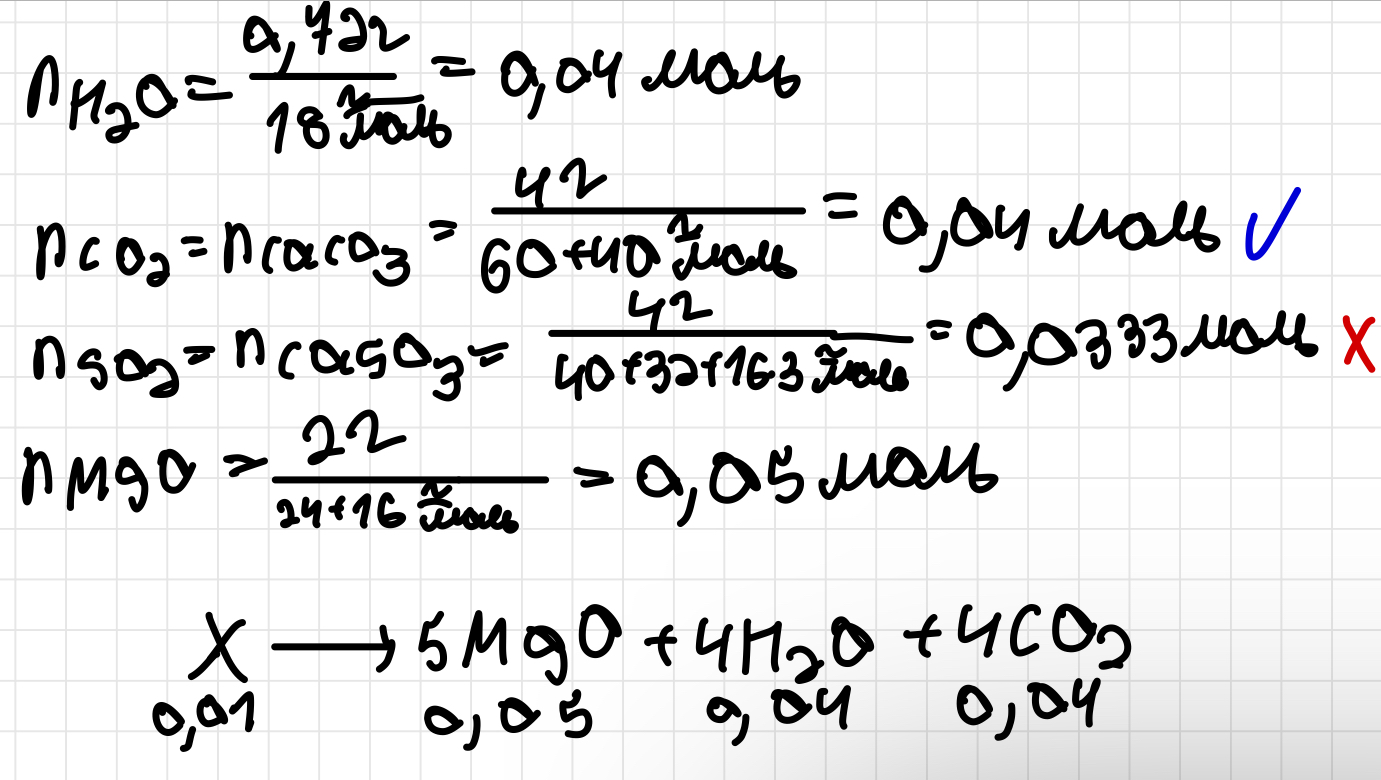 n H₂O = 0,72г / 18 г/моль = 0,04 моль
n CO₂ = n CaCO₃ = 4г / 60+40 г/моль = 0,04 моль ✓
n SO₂ = n CaSO₃ = 4г / 40+32+16·3 г/моль = 0,0333 моль ✗
n MgO = 2г / 24+16 г/моль = 0,05 моль
X ⟶ 5MgO + 4H₂O + 4CO₂
0,01 0,05 0,04 0,04